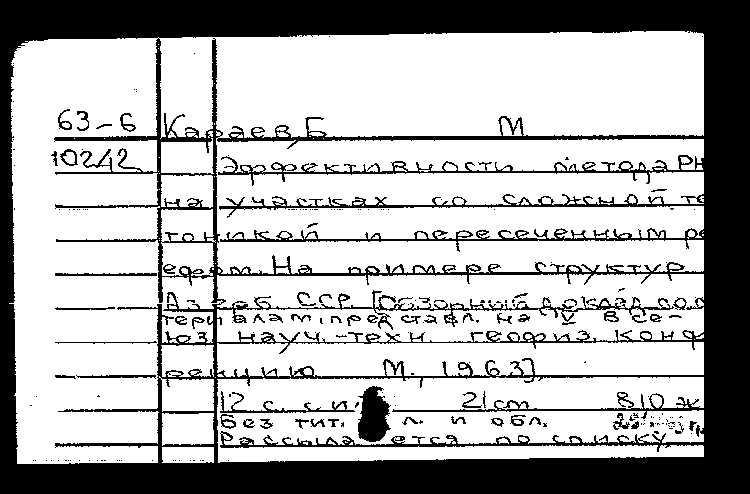 63-6 Караев, Б М
10242 Эффективности метода РН
на участках со сложной те
тоникой и пересеченным ре
ефом. На примере структур
Азерб. ССР. [Обзорный доклад по
териалам представл. на IV Все-
юз науч.-техн. геофиз. конф
ренцию М., 1963].
12 с. с ил 21 cm 810 эк
Без тит. л. и обл.
Рассылается по списку.